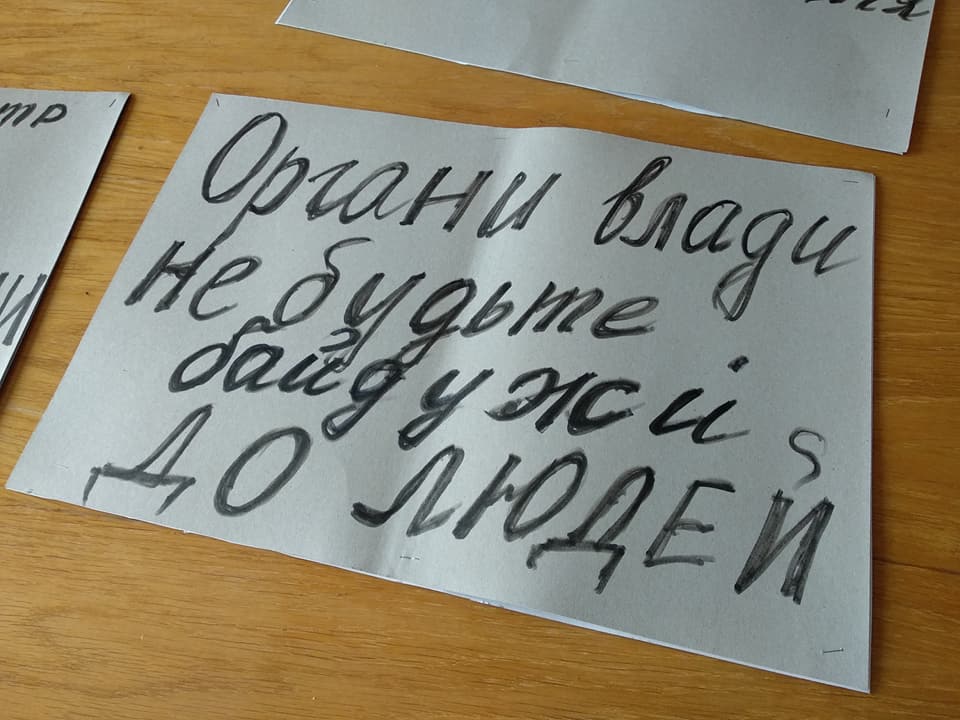 Органи влади
не будьте
байдужі
ДО ЛЮДЕЙ